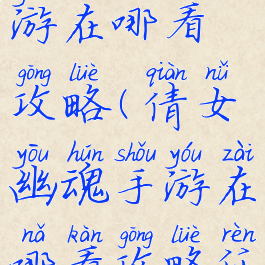 游在哪看
gōng lüè qiàn nǚ
攻略(倩女
yōu hún shǒu yóu zài
幽魂手游在
nǎ kàn gōng lüè rèn
哪看攻略